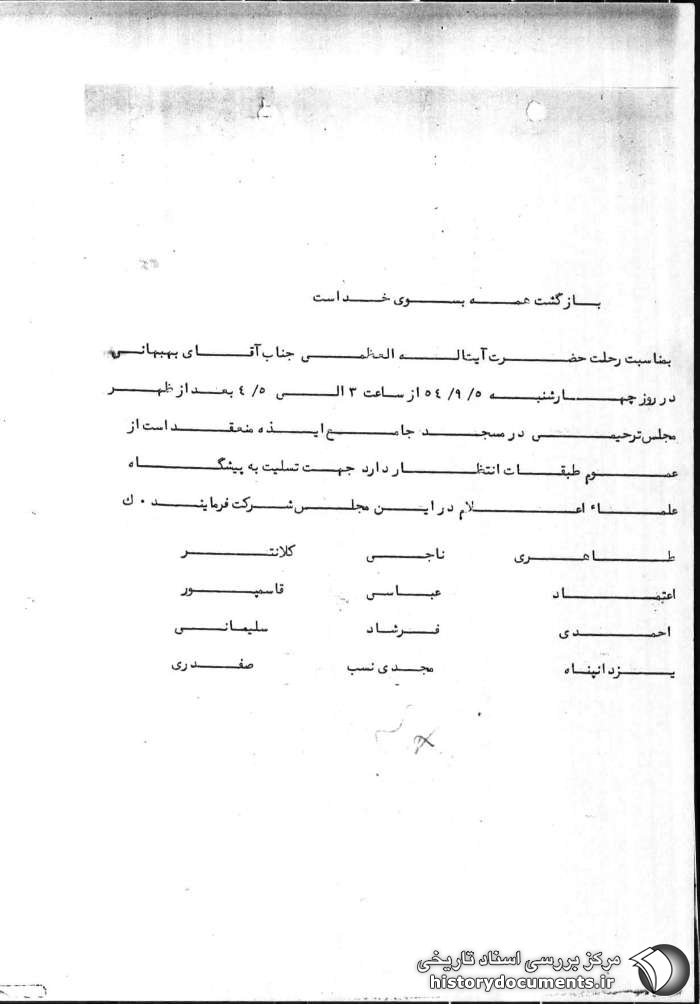 بازگشت همه بسوی خداست
بمناسبت رحلت حضرت آیتاله العظمی جناب آقای بهبهانی
در روز چهارشنبه ۵۴/۹/۵ از ساعت ۳ الی ۴/۵ بعد از ظهر
مجلس ترحیمی در مسجد جامع ایذه منعقد است از
عموم طبقات انتظار دارد جهت تسلیت به پیشگاه
علماء اعلام در این مجلس شرکت فرمایند ۰ ك
طاهری ناجی کلانتر
اعتماد عباسی قاسمپور
احمدی فرشاد سلیمانی
یزدانپناه مجدی نسب صفدری
مرکز بررسی اسناد تاریخی
historydocuments.ir